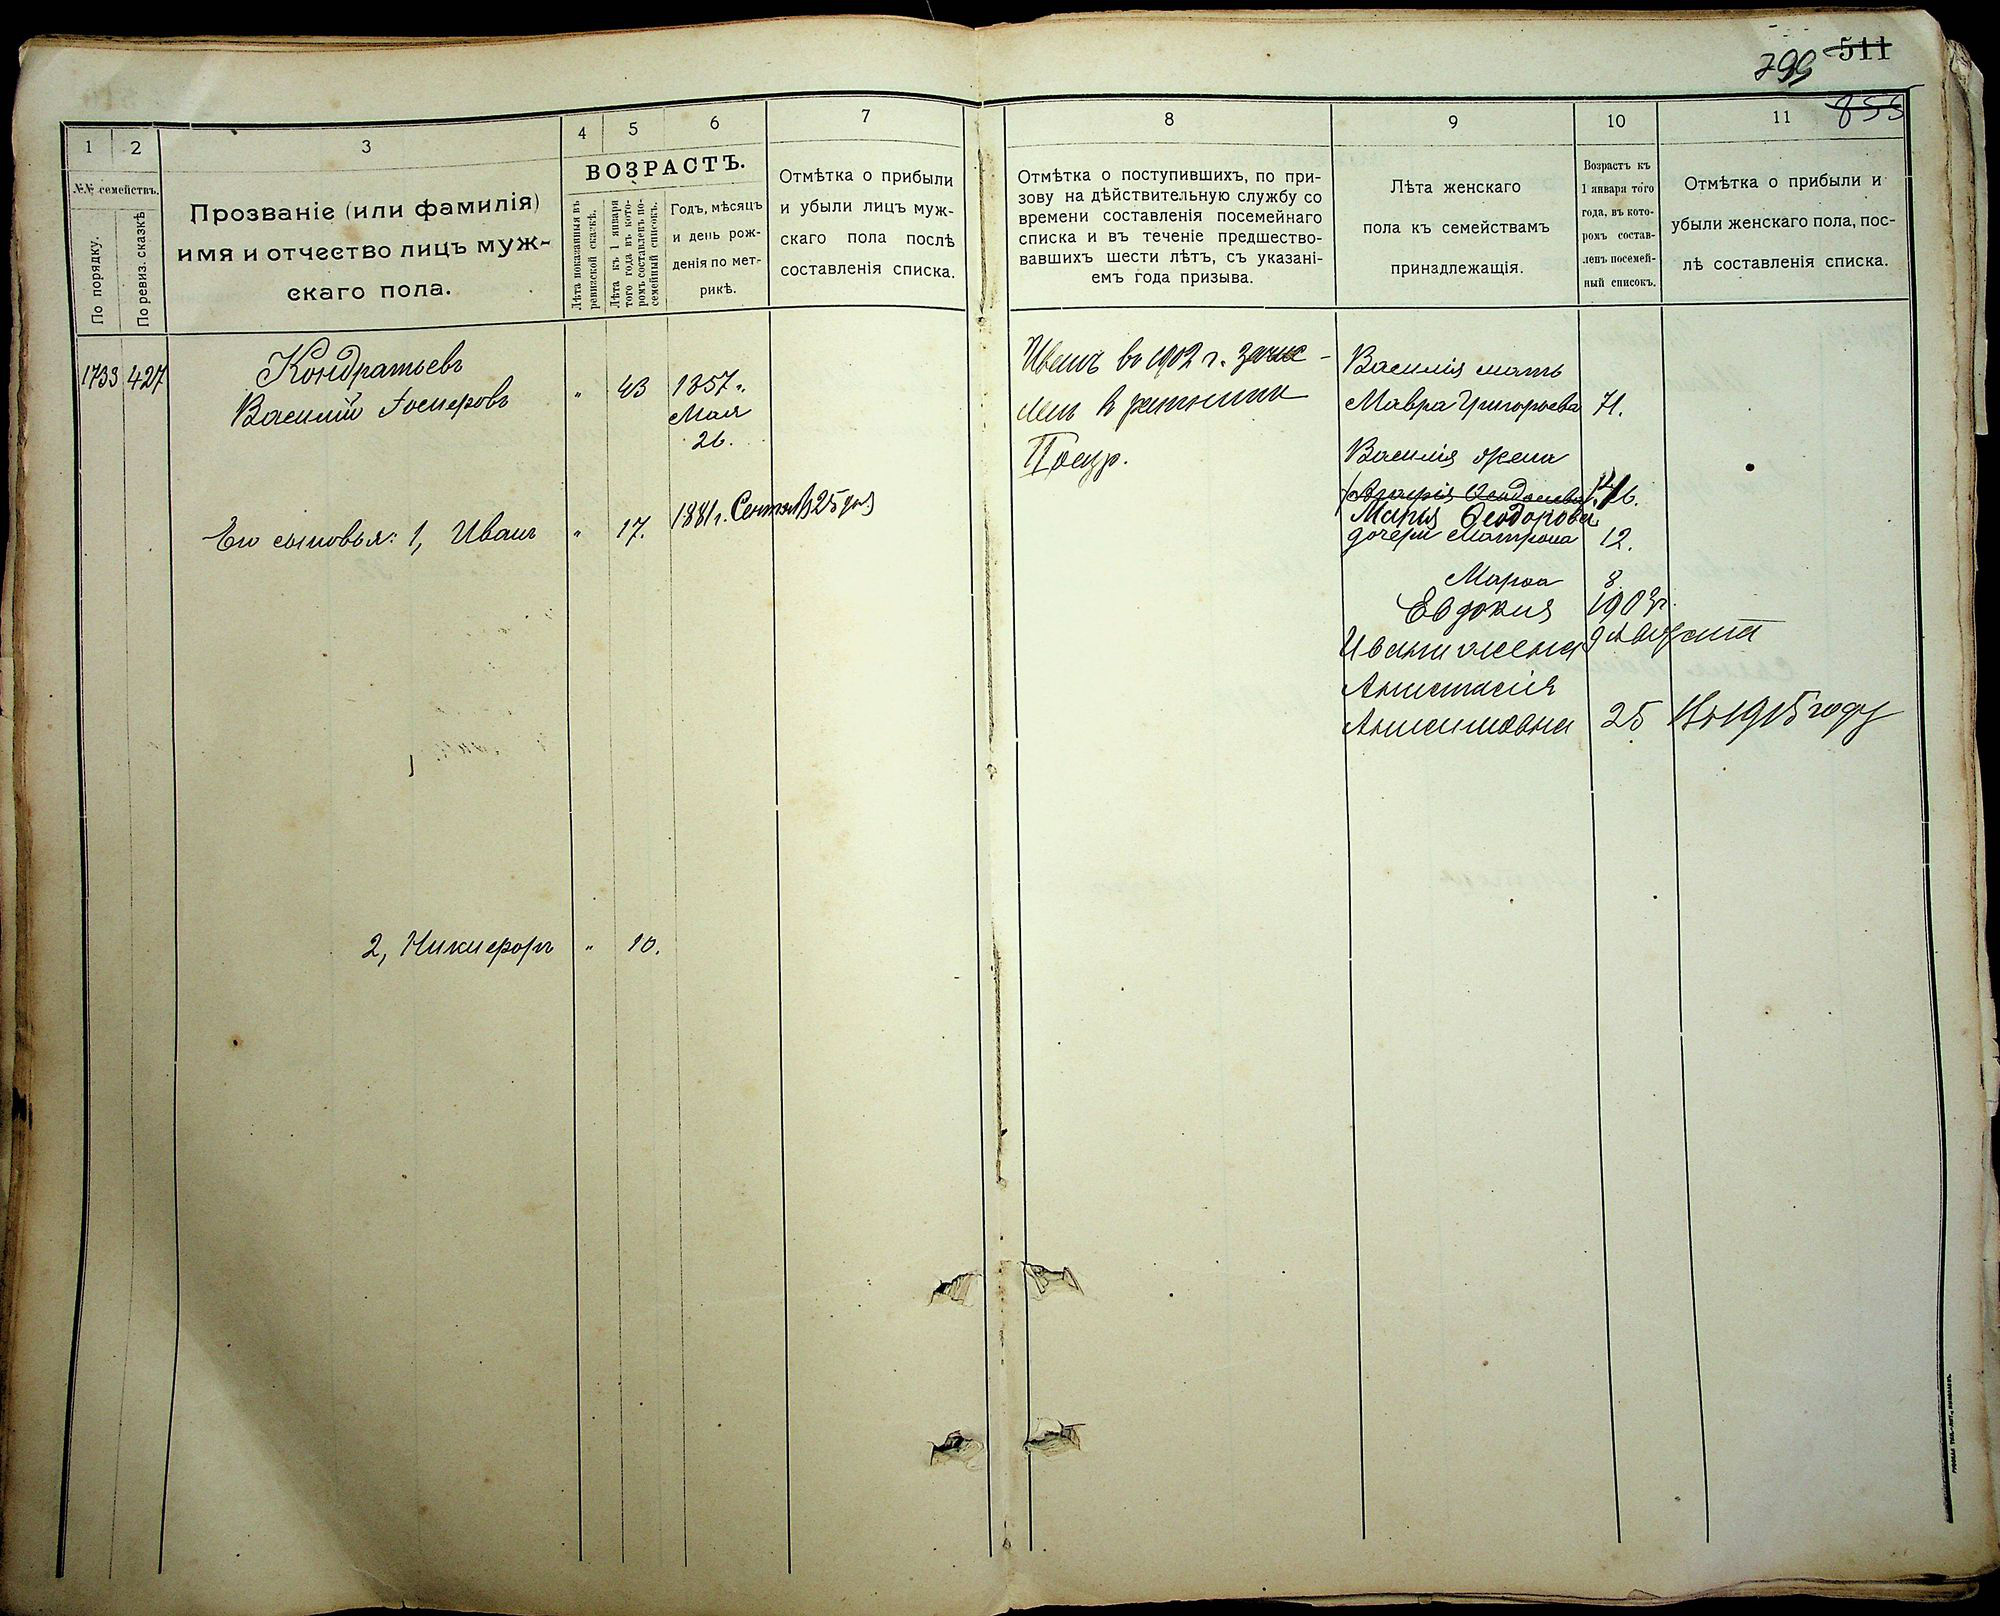 511
799
855
1
2
3
4
5
6
7
8
9
10
11
№№ семействъ.
По порядку.
По ревиз. сказкѣ
Прозваніе (или фамилія)
имя и отчество лицъ муж-
скаго пола.
ВОЗРАСТЪ.
Лѣта показанныя въ
ревизской сказкѣ.
Лѣта къ 1 января
того года въ кото-
ромъ составленъ по-
семейный списокъ.
Годъ, мѣсяцъ
и день рож-
денія по мет-
рикѣ.
Отмѣтка о прибыли
и убыли лицъ муж-
скаго пола послѣ
составленія списка.
Отмѣтка о поступившихъ, по при-
зову на дѣйствительную службу со
времени составленія посемейнаго
списка и въ теченіе предшество-
вавшихъ шести лѣтъ, съ указані-
емъ года призыва.
Лѣта женскаго
пола къ семействамъ
принадлежащія.
Возрастъ къ
1 января того
года, въ кото-
ромъ состав-
ленъ посемей-
ный списокъ.
Отмѣтка о прибыли и
убыли женскаго пола, пос-
лѣ составленія списка.
1733 427
Кондратьевъ
Василій " 43 1857.
Мая
26.
Его сыновья: 1, Иванъ " 17. 1881 г. Сентяб 25 дня
2, Никифоръ " 10.
Иванъ въ 1902 г. зачис-
ленъ в ратники
Василія мать
Мавра Григорьева 71.
Василія жена
Марья Ѳеодорова
дочери Матрона 12.
Марѳа 8
Евдокия 1903 г.
Ивана жена 9 Августа
Анастасія
Анисимовна 25 Въ 1915 году